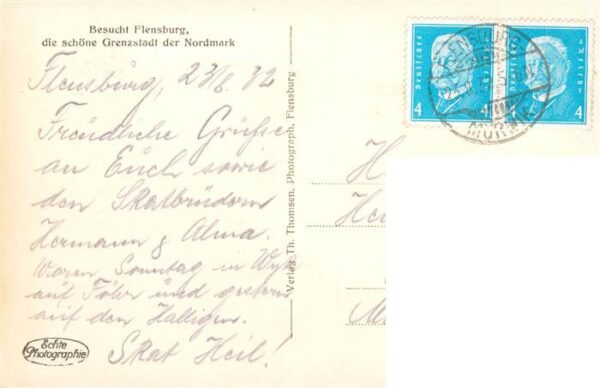 Besucht Flensburg,
die schöne Grenzstadt der Nordmark
Flensburg, 23/8. 32
Freundliche Grüsse
an Euch sowie
den Skatbrüdern
Hermann & Alma.
Waren Sonntag in Wyk
auf Föhr und gestern
auf den Halligen.
Skat Heil!
Echte
Photographie
Verlag Th. Thomsen, Photograph, Flensburg
Deutsches Reich
4
Deutsches Reich
4
FLENSBURG
MÜRWIK
H
He
M